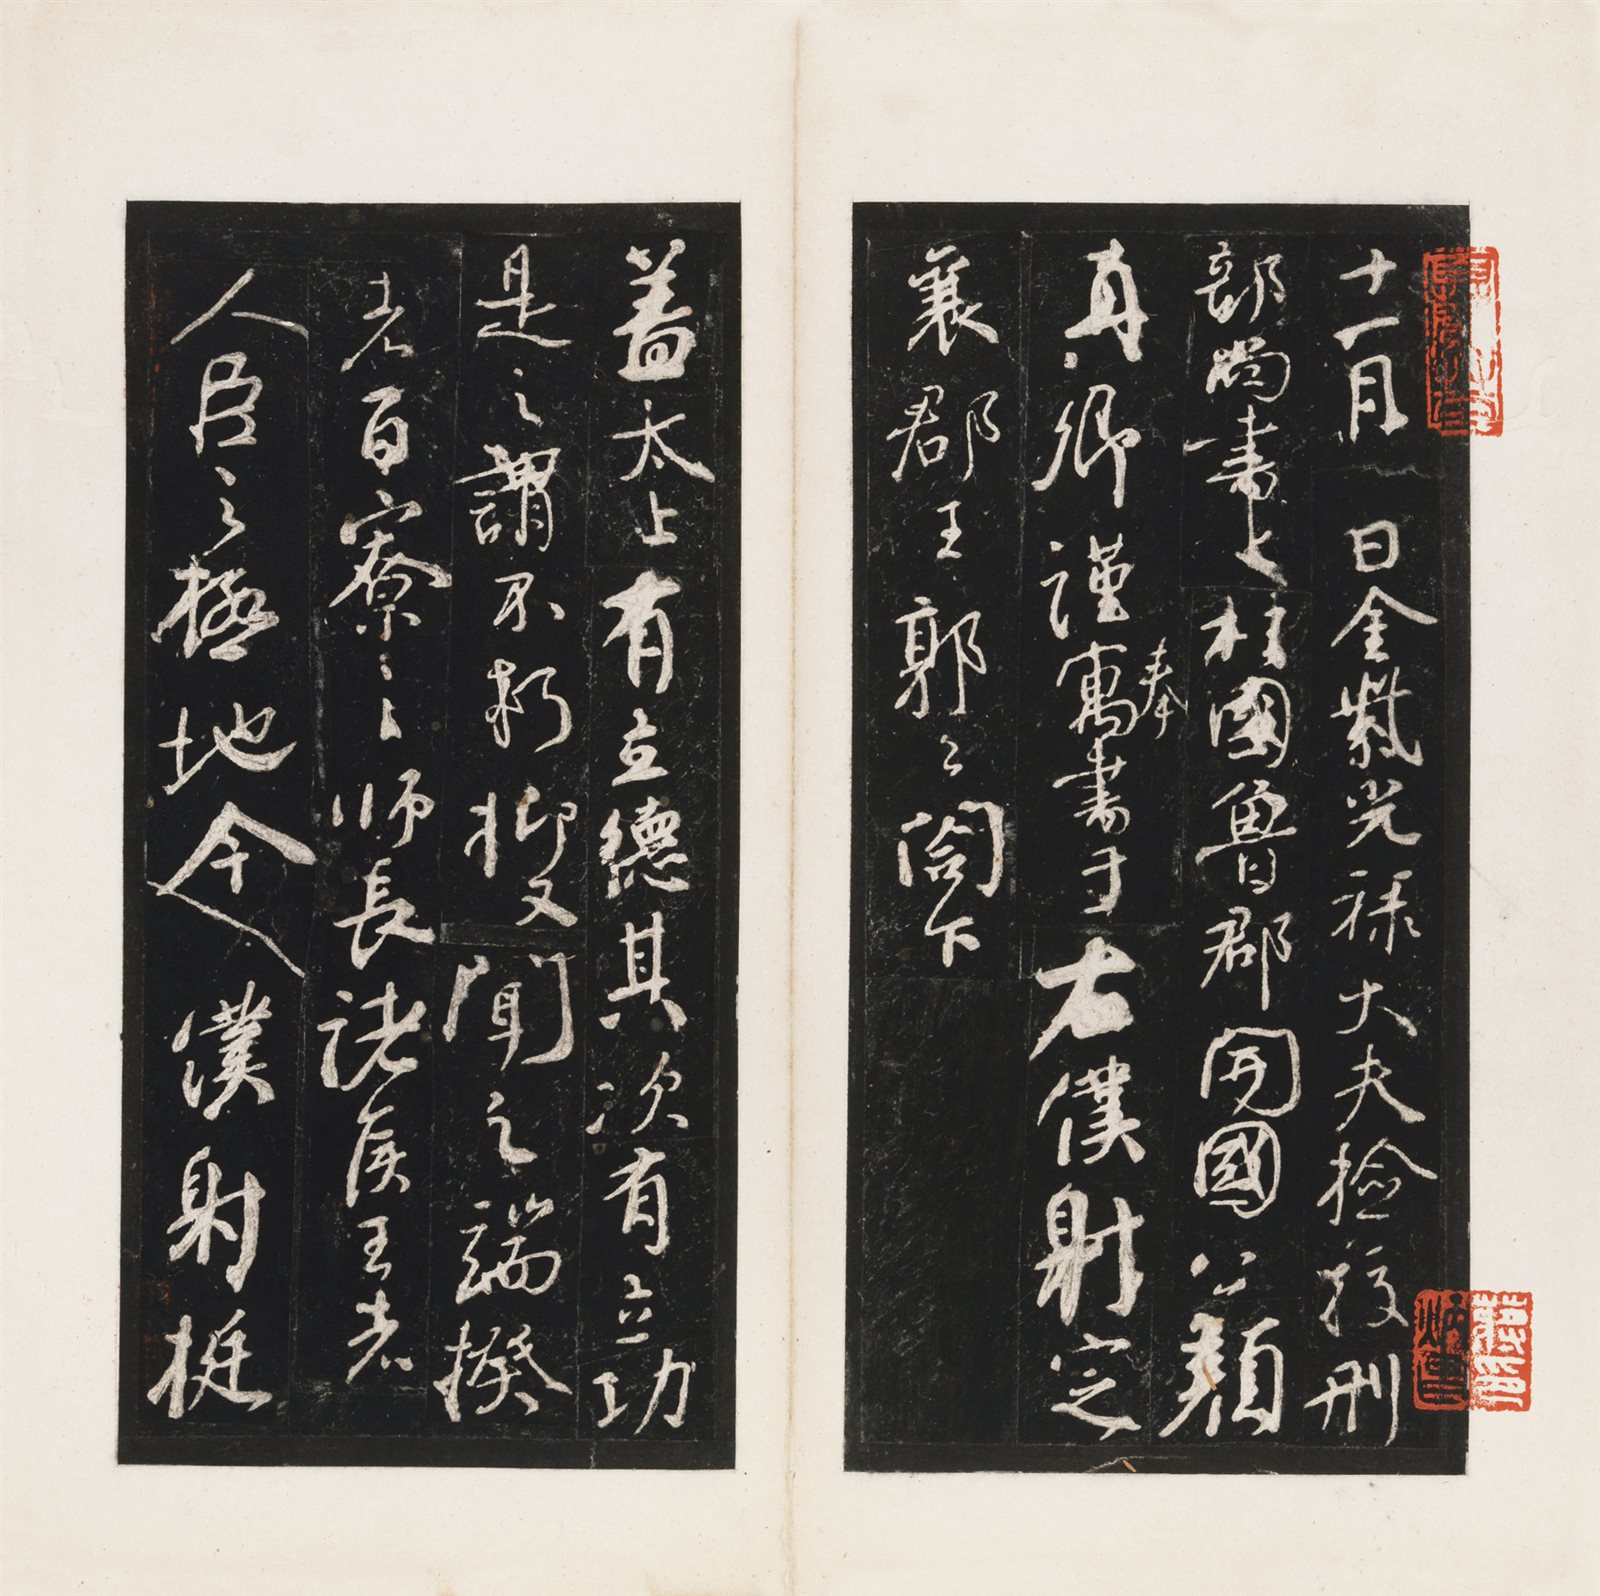 十一月　日金紫光祿大夫撿挍刑
部尚書上柱國魯郡開國公顏
真卿謹寓書奉于右僕射定
襄郡王郭公閤下
蓋太上有立德其次有立功
是之謂不朽抑又聞之端揆
者百寮之師長諸侯王者
人臣之極地今僕射挺